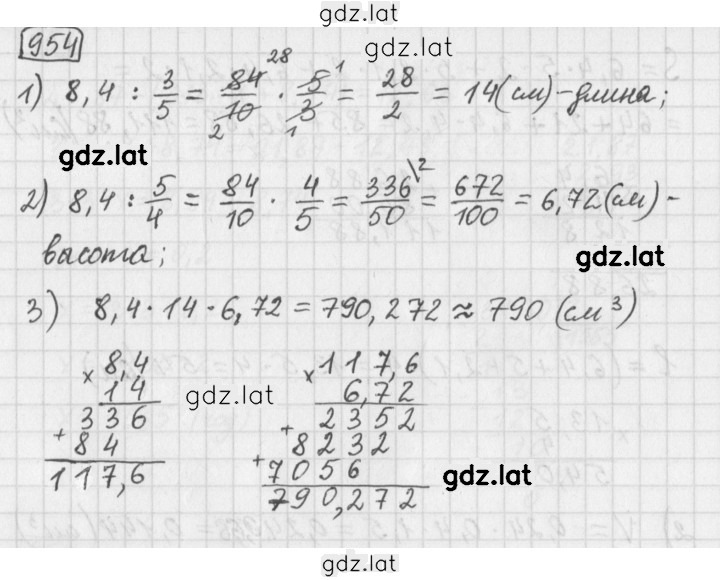 gdz.lat
954
gdz.lat
1) 8,4 : 3/5 = 84/10 · 5/3 = 28/2 = 14(см)-длина;
28 1
2 1
gdz.lat
2) 8,4 : 5/4 = 84/10 · 4/5 = 336/50 \2 = 672/100 = 6,72(см)-
высота;
3) 8,4 · 14 · 6,72 = 790,272 ≈ 790 (см³)
× 8,4
14
gdz.lat
336
+ 84
117,6
× 117,6
6,72
2352
+ 8232
+ 7056
790,272
gdz.lat
gdz.lat